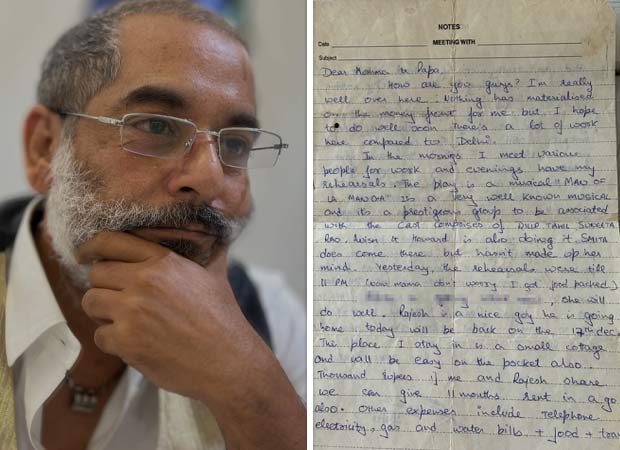 NOTES
Date MEETING WITH
Subject
Dear Momma & Papa,
How are you guys? I'm really
well over here. Nothing has materialised
on the money front for me but I hope
to do well soon there's a lot of work
here compared to Delhi.
In the mornings I meet various
people for work and evenings have my
rehearsals. The play is a musical "MAN OF
LA MANCHA" Its a very well known musical
and its a prestigious group to be associated
with the cast comprises of DILIP TAHIL SUCHETA
RAO. Avisn K Howard is also doing it. SMITA
does come there but hasn't made up her
mind. Yesterday, the rehearsals were till
11 PM (mama don't worry I got food packed)
, She will
do well. Rajesh is a nice guy he is going
home today will be back on the 17th dec.
The place I stay in is a small cottage
and will be easy on the pocket also.
Thousand Rupees if me and Rajesh share
we can give 11 months rent in a go
also. Other expenses include Telephone
electricity, gas and water bills + food +